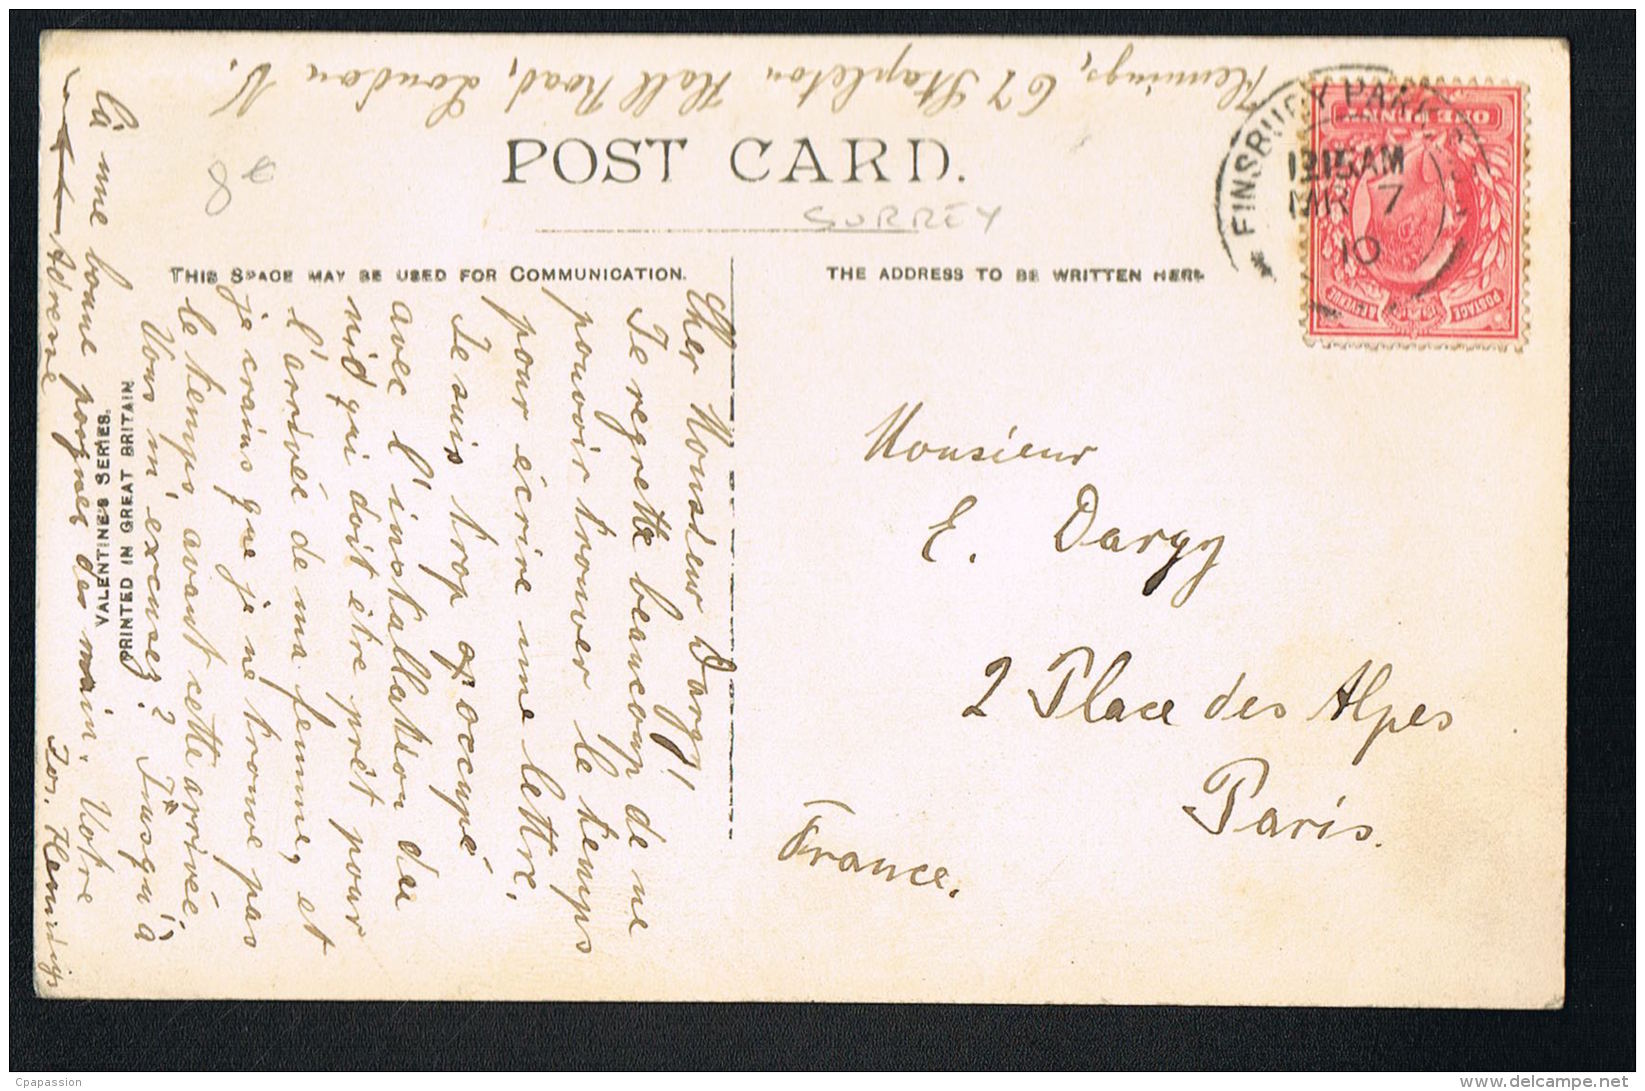 Flemings, 67 Stapleton Hall Road, London N.
8€
POST CARD.
SURREY
THIS SPACE MAY BE USED FOR COMMUNICATION.
THE ADDRESS TO BE WRITTEN HERE
FINSBURY PARK
12.15AM
MR 7
10
ONE PENNY
POSTAGE
REVENUE
Cher Monsieur Dargy!
Je regrette beaucoup de ne
pouvoir trouver le temps
pour écrire une lettre.
Je suis trop occupé
avec l'installation du
nid qui doit être prêt pour
l'arrivée de ma femme, et
je crains que je ne trouve pas
le temps avant cette arrivée.
Vous m'excusez? Jusqu'à
là une bonne poignée de main. Votre
Jos. Flemings
Adresse
VALENTINES SERIES.
PRINTED IN GREAT BRITAIN
Monsieur
E. Dargy
2 Place des Alpes
Paris.
France.
Cpapassion
www.delcampe.net